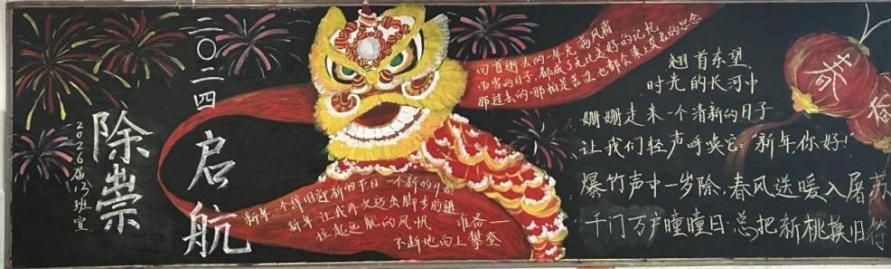 二〇二四启航
除崇
2026届13班宣
回首逝去的一年充满风霜
雨雪的日子,都成了无比美好的记忆
那过去的哪怕是苦涩也都会来
的思念
新年,个辞旧迎新的节日一个新的
新年,让我再次迈出脚步前进
扬起远航的风帆 准备——
不断地向上攀登
翘首东望
时光的长河中
姗姗走来一个清新的日子
让我们轻声呼唤它:“新年你好!”
爆竹声中一岁除,春风送暖入屠苏
千门万户曈曈日,总把新桃换旧符